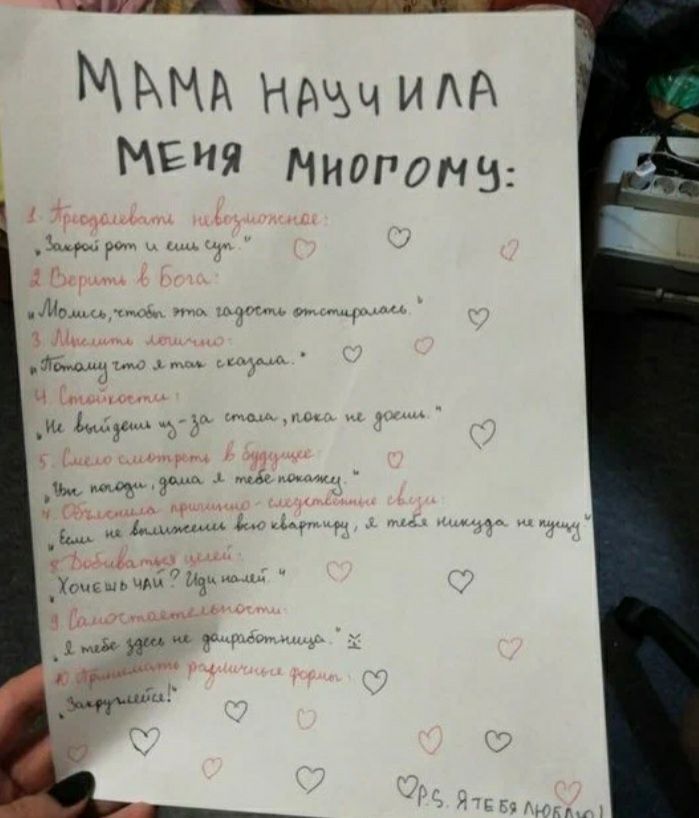 МАМА НАУЧИЛА
МЕНЯ МНОГОМУ:
1. Преодолевать невозможное:
„Закрой рот и ешь суп."
2. Верить в Бога:
„Молись, чтобы эта гадость отстиралась."
3. Мыслить логично:
„Потому что я так сказала."
4. Стойкости:
„Не выйдешь из-за стола, пока не доешь."
5. Смело смотреть в будущее:
погоди, дома я тебе покажу."
7. Объяснила причинно-следственные связи:
„Если не вылижешь всю квартиру, я тебя никуда не пущу"
8. Добиваться целей:
„Хочешь чай? Иди налей."
9. Самостоятельности:
„Я тебе здесь не домработница."
10. Принимать различные формы:
P.S. Я ТЕБЯ ЛЮБЛЮ!